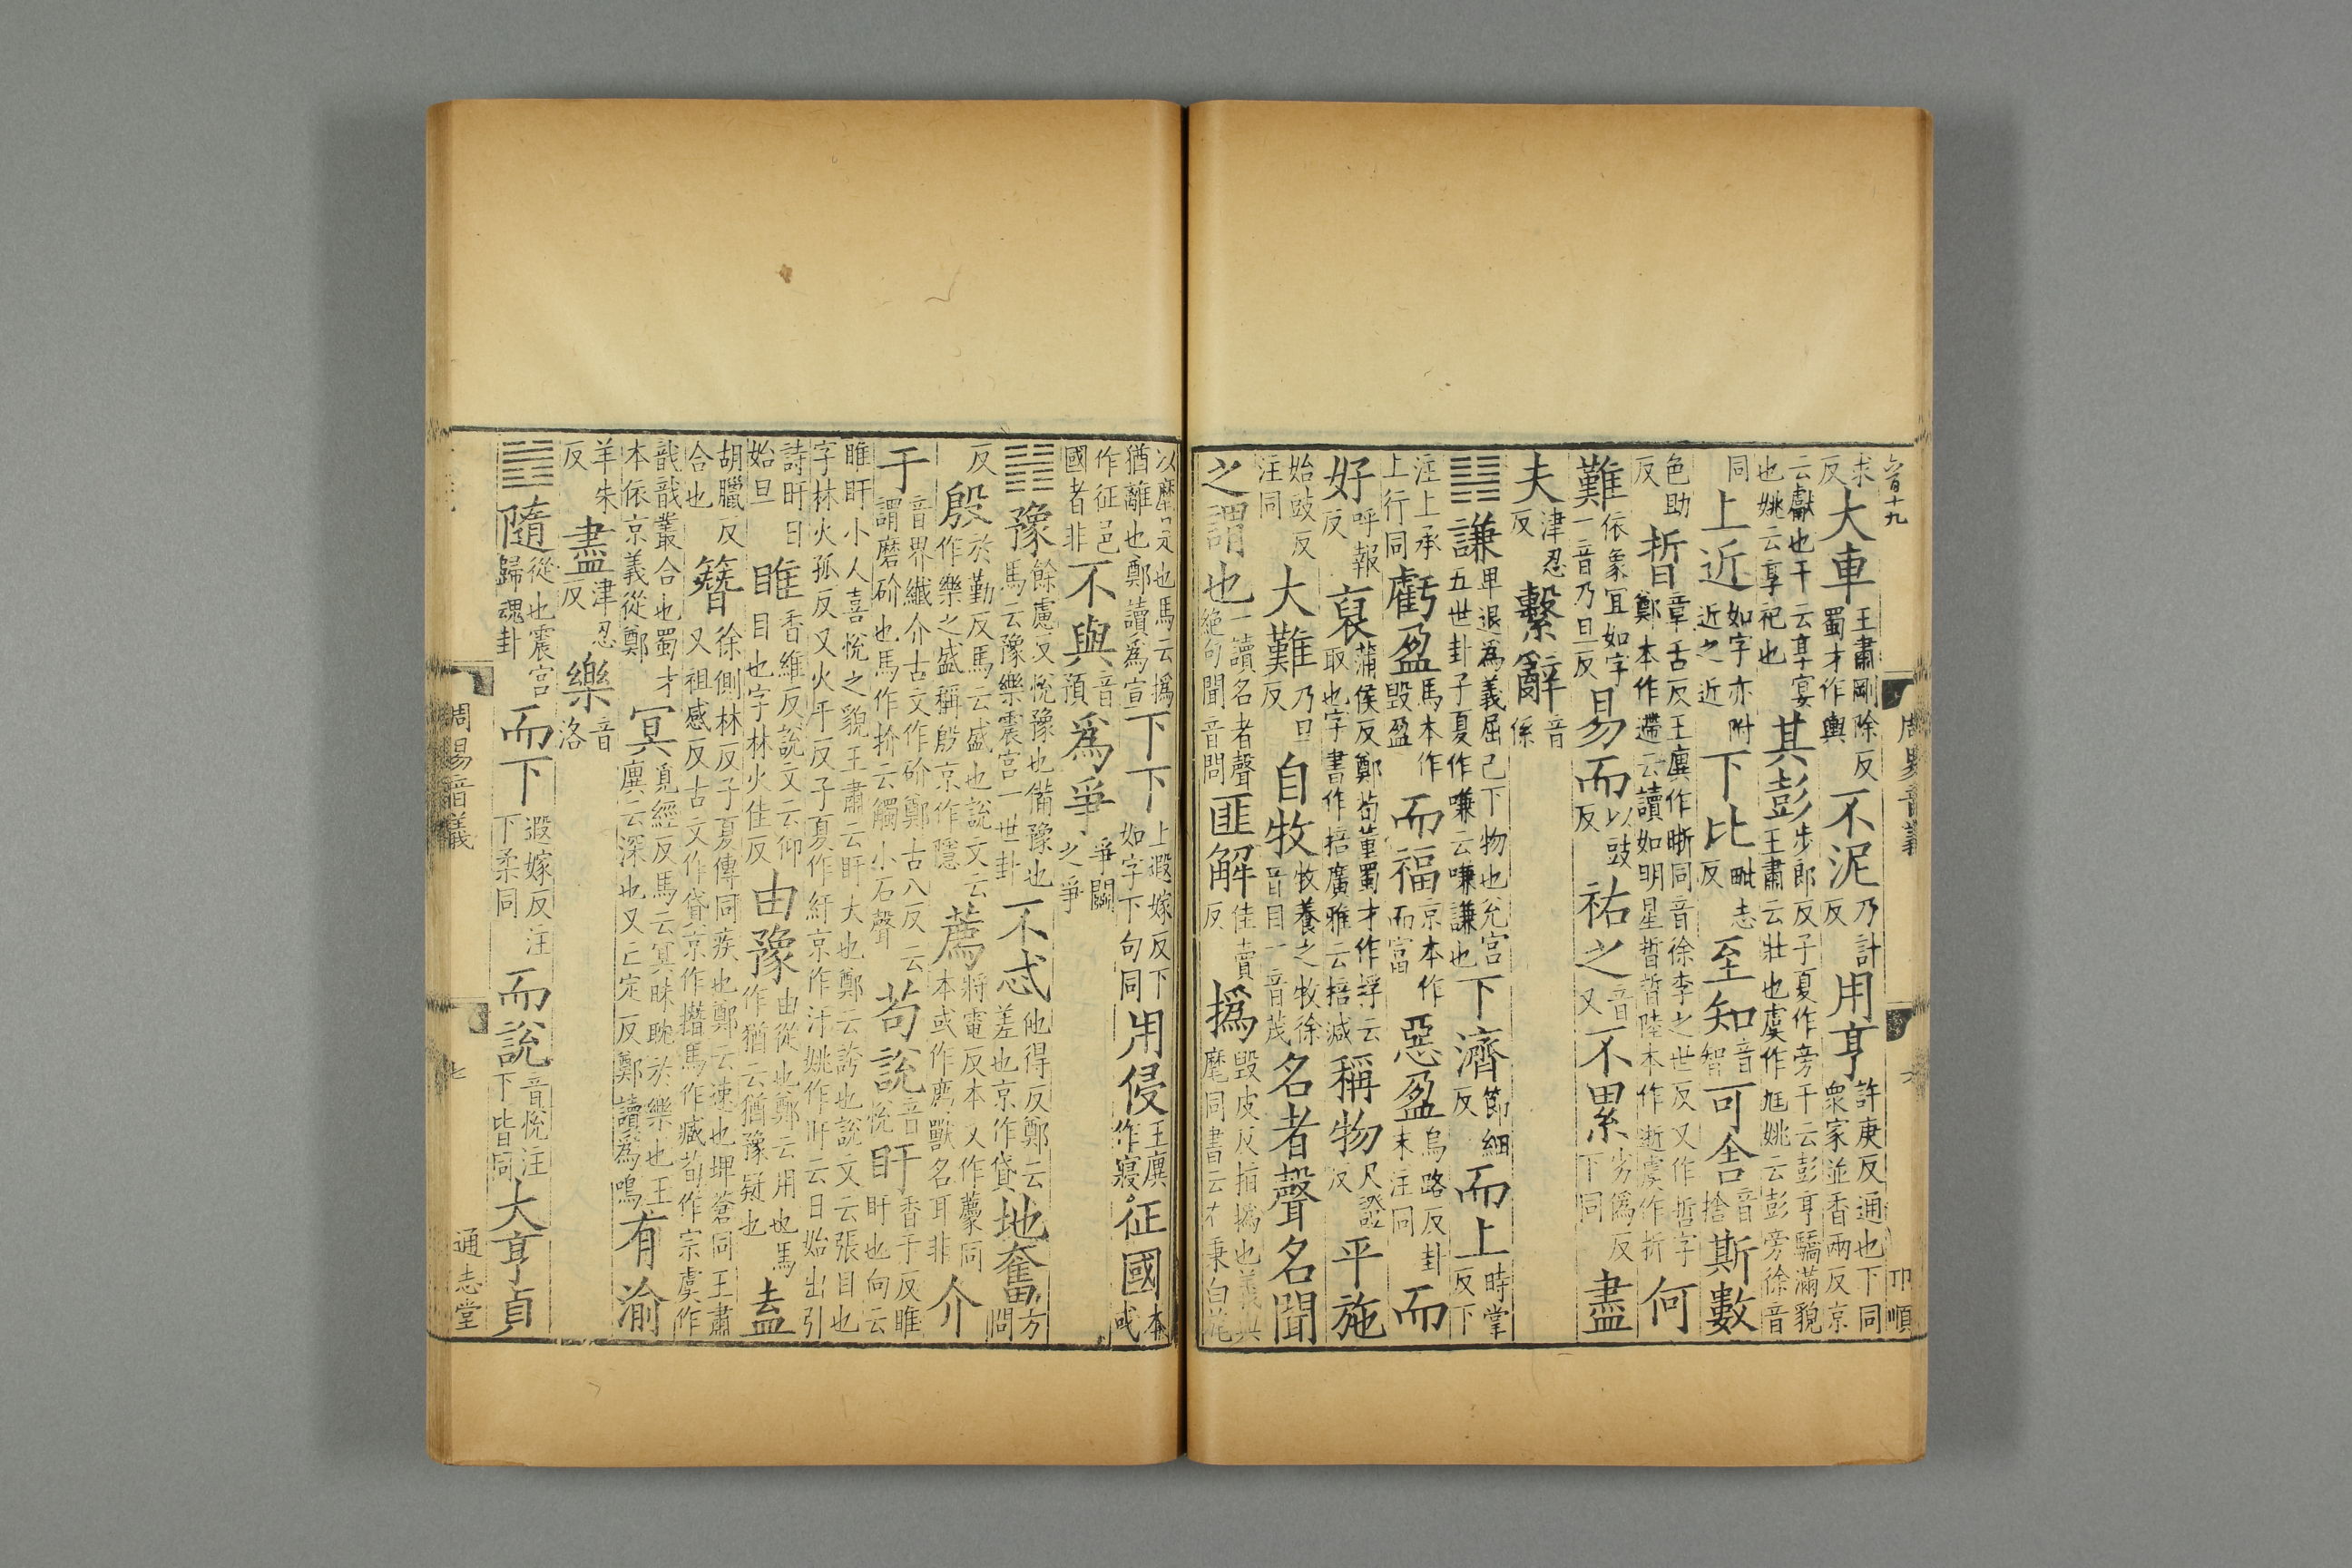 周易音義
六
卭順
求反 大車 王肅剛除反蜀才作輿 不泥 乃計反 用亨 許庚反通也下同衆家並香兩反京
云獻也干云享宴也姚云享祀也 其彭 步郎反子夏作旁干云彭亨驕滿貌王肅云壯也虞作尪姚云彭旁徐音
同 上近 如字亦附近之近 下比 毗志反 至知 音智 可舍 音捨 斯數
色助反 晢 章舌反王廙作晣同音徐李之世反又作哲字鄭本作遰云讀如明星晢晢陸本作逝虞作折 何
難 依象宜如字一音乃旦反 易而 以豉反 祐之 音又 不累 劣僞反下同 盡
夫 津忍反 繫辭 音係
䷎ 謙 卑退爲義屈己下物也兊宮五世卦子夏作嗛云嗛謙也 下濟 節細反 而上 時掌反下
注上承上行同 虧盈 馬本作毀盈 而福 京本作而富 惡盈 烏路反卦末注同 而
好 呼報反 裒 蒲侯反鄭荀董蜀才作捊云取也字書作掊廣雅云掊減 稱物 尺證反 平施
始豉反注同 大難 乃旦反 自牧 牧養之牧徐音目一音茂 名者聲名聞
之謂也 一讀名者聲絶句聞音問 匪解 佳賣反 撝 毀皮反指撝也義與麾同書云右秉白旄
以麾是也馬云撝猶離也鄭讀爲宣 下下 上遐嫁反下如字下句同 用侵 王廙作寢 征國 本或
作征邑國者非 不與 音預 爲爭 爭鬬之爭
䷏ 豫 餘慮反悅豫也備豫也馬云豫樂震宮一世卦 不忒 他得反鄭云差也京作貸 地奮 方問
反 殷 於勤反馬云盛也說文云作樂之盛稱殷京作隱 薦 將電反本又作䕷同本或作廌獸名耳非 介
于 音界纖介古文作砎鄭古八反云謂磨砎也馬作扴云觸小石聲 苟說 音悅 盱 香于反睢盱也向云
睢盱小人喜悅之貌王肅云盱大也鄭云誇也說文云張目也字林火孤反又火于反子夏作紆京作汙姚作旴云日始出引
詩旴日始旦 睢 香維反說文云仰目也字林火佳反 由豫 由從也鄭云用也馬作猶云猶豫疑也 盍
胡臘反合也 簪 徐側林反子夏傳同疾也鄭云速也埤蒼同王肅又祖感反古文作貸京作撍馬作臧荀作宗虞作
戠戠叢合也蜀才本依京義從鄭 冥 覓經反馬云冥昧耽於樂也王廙云深也又亡定反鄭讀爲鳴 有渝
羊朱反 盡 津忍反 樂 音洛
䷐ 隨 從也震宮歸魂卦 而下 遐嫁反注下柔同 而說 音悅注下皆同 大亨貞
周易音義
七
通志堂